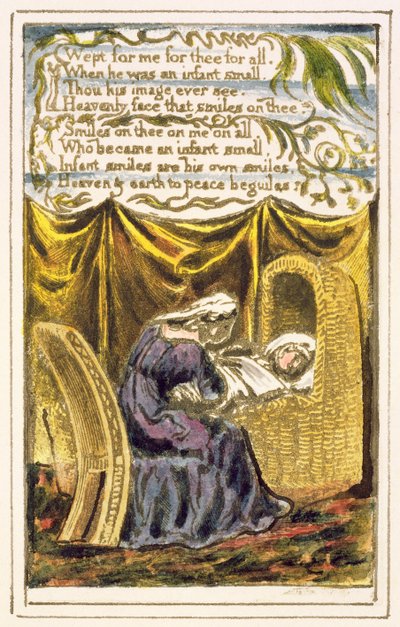 Wept for me for thee for all.
When he was an infant small.
Thou his image ever see.
Heavenly face that smiles on thee.
Smiles on thee on me on all
Who became an infant small
Infant smiles are his own smiles.
Heaven & earth to peace beguiles.